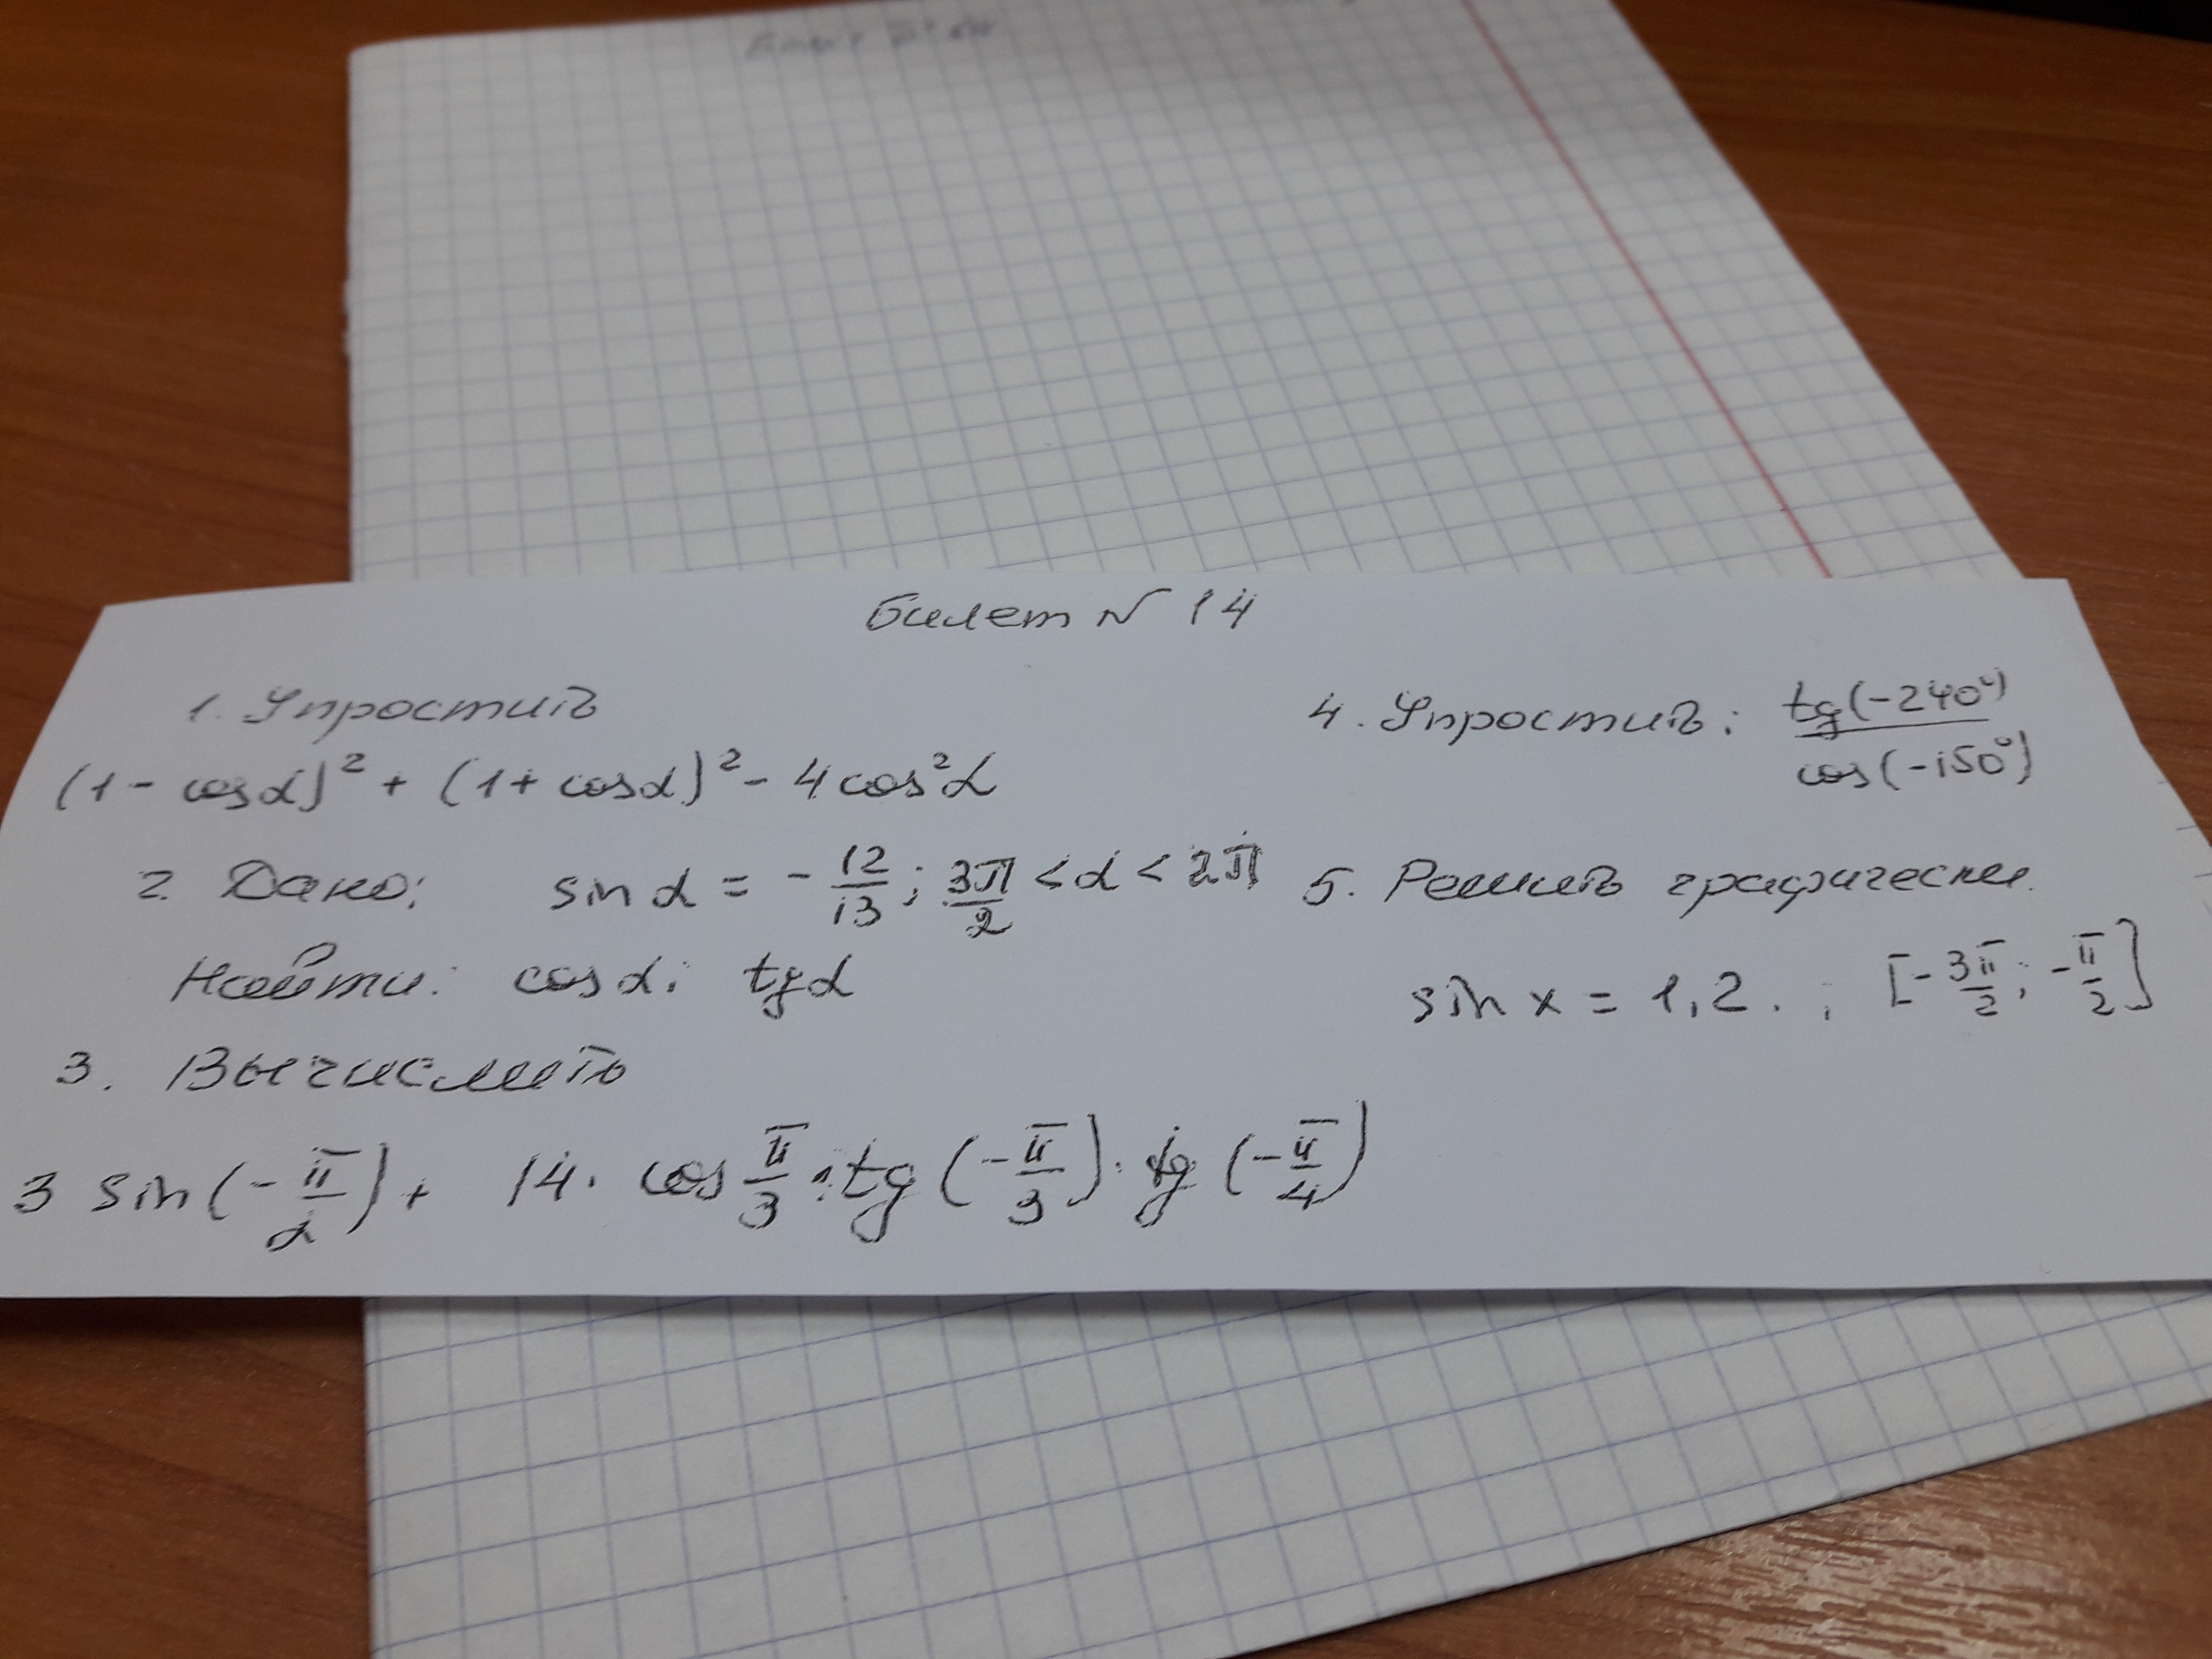 Билет № 14
1. Упростить
(1 - cosα)² + (1 + cosα)² - 4cos²α
2. Дано: sin α = - 12/13; 3π/2 < α < 2π
Найти: cosα; tgα
3. Вычислить
3 sin(-π/2) + 14 · cos π/3 · tg(-π/3) · tg(-π/4)
4. Упростить: tg(-240°)/cos(-150°)
5. Решить графически
sin x = 1,2. ; [-3π/2; -π/2]